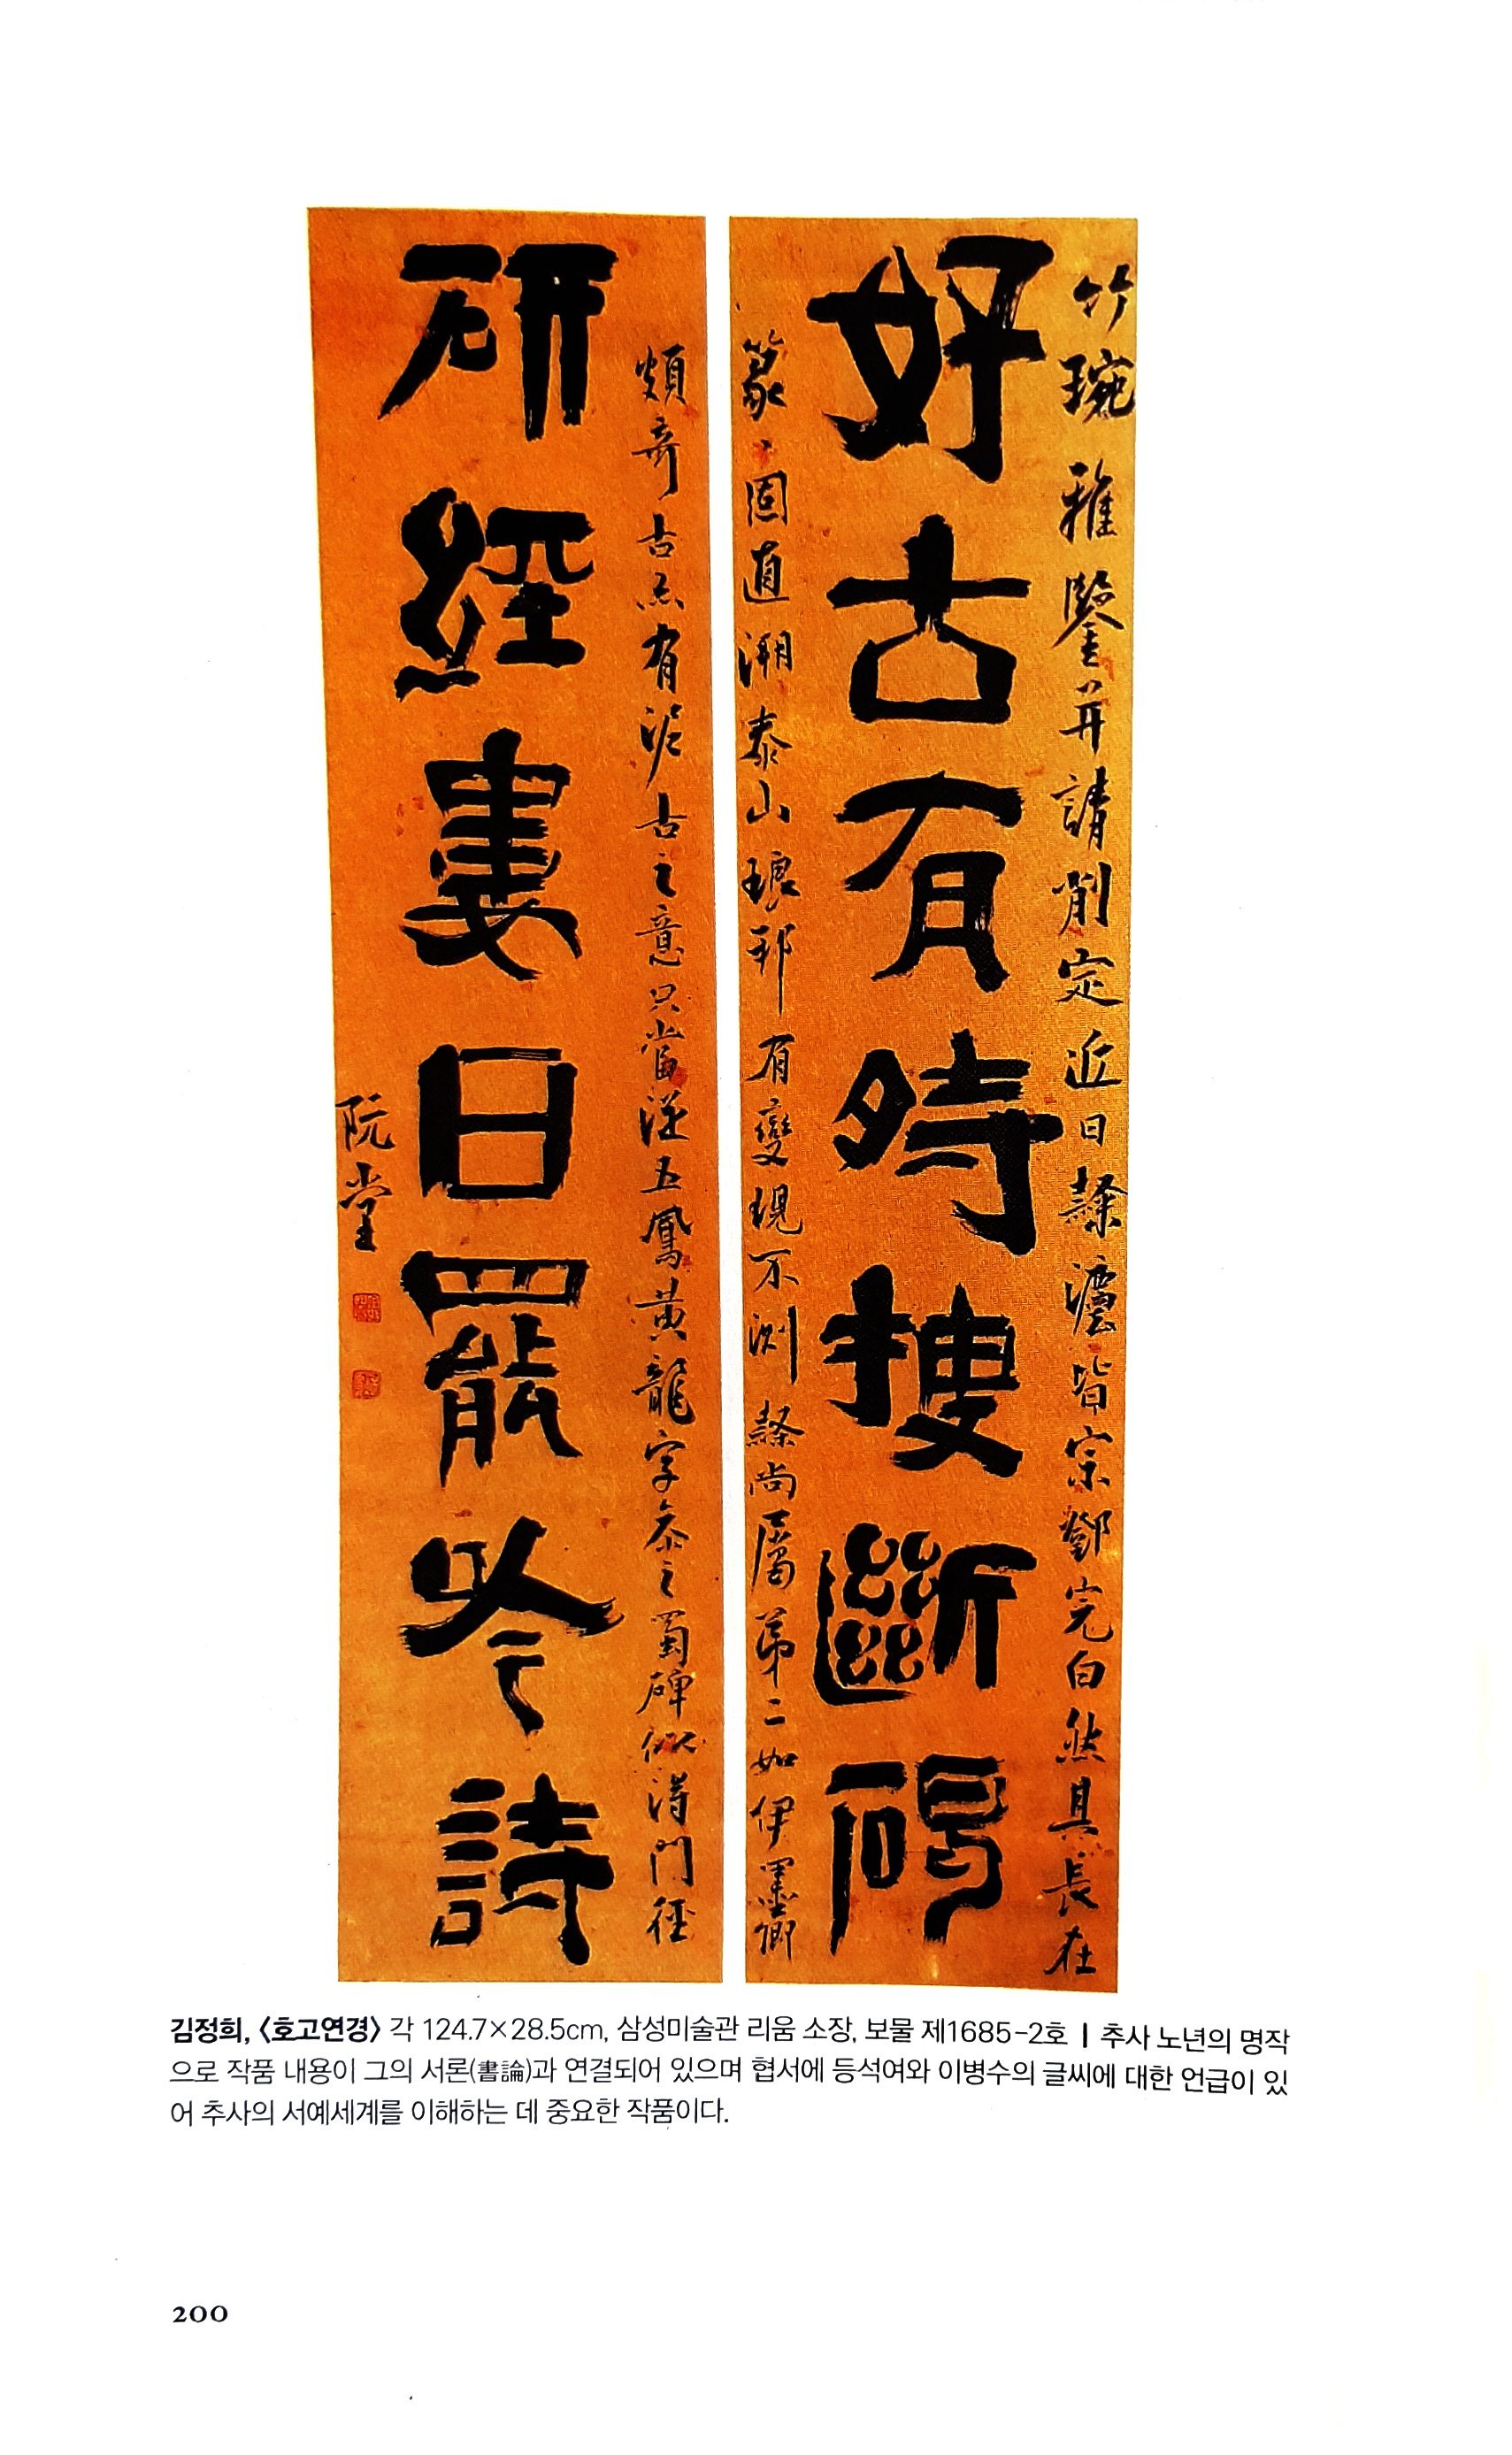 竹琬雅鑒並請削定近日隸灋皆宗鄧完白然其長在
好古有時搜斷碣
篆篆固直溯泰山琅邪有變現不測隸尚屬第二如伊墨卿
頗奇古亦有泥古之意只當從五鳳黃龍字參之蜀碑似得門徑
研經婁日罷吟詩
阮堂
김정희, 〈호고연경〉 각 124.7×28.5cm, 삼성미술관 리움 소장, 보물 제1685-2호 | 추사 노년의 명작
으로 작품 내용이 그의 서론(書論)과 연결되어 있으며 협서에 등석여와 이병수의 글씨에 대한 언급이 있
어 추사의 서예세계를 이해하는 데 중요한 작품이다.
200